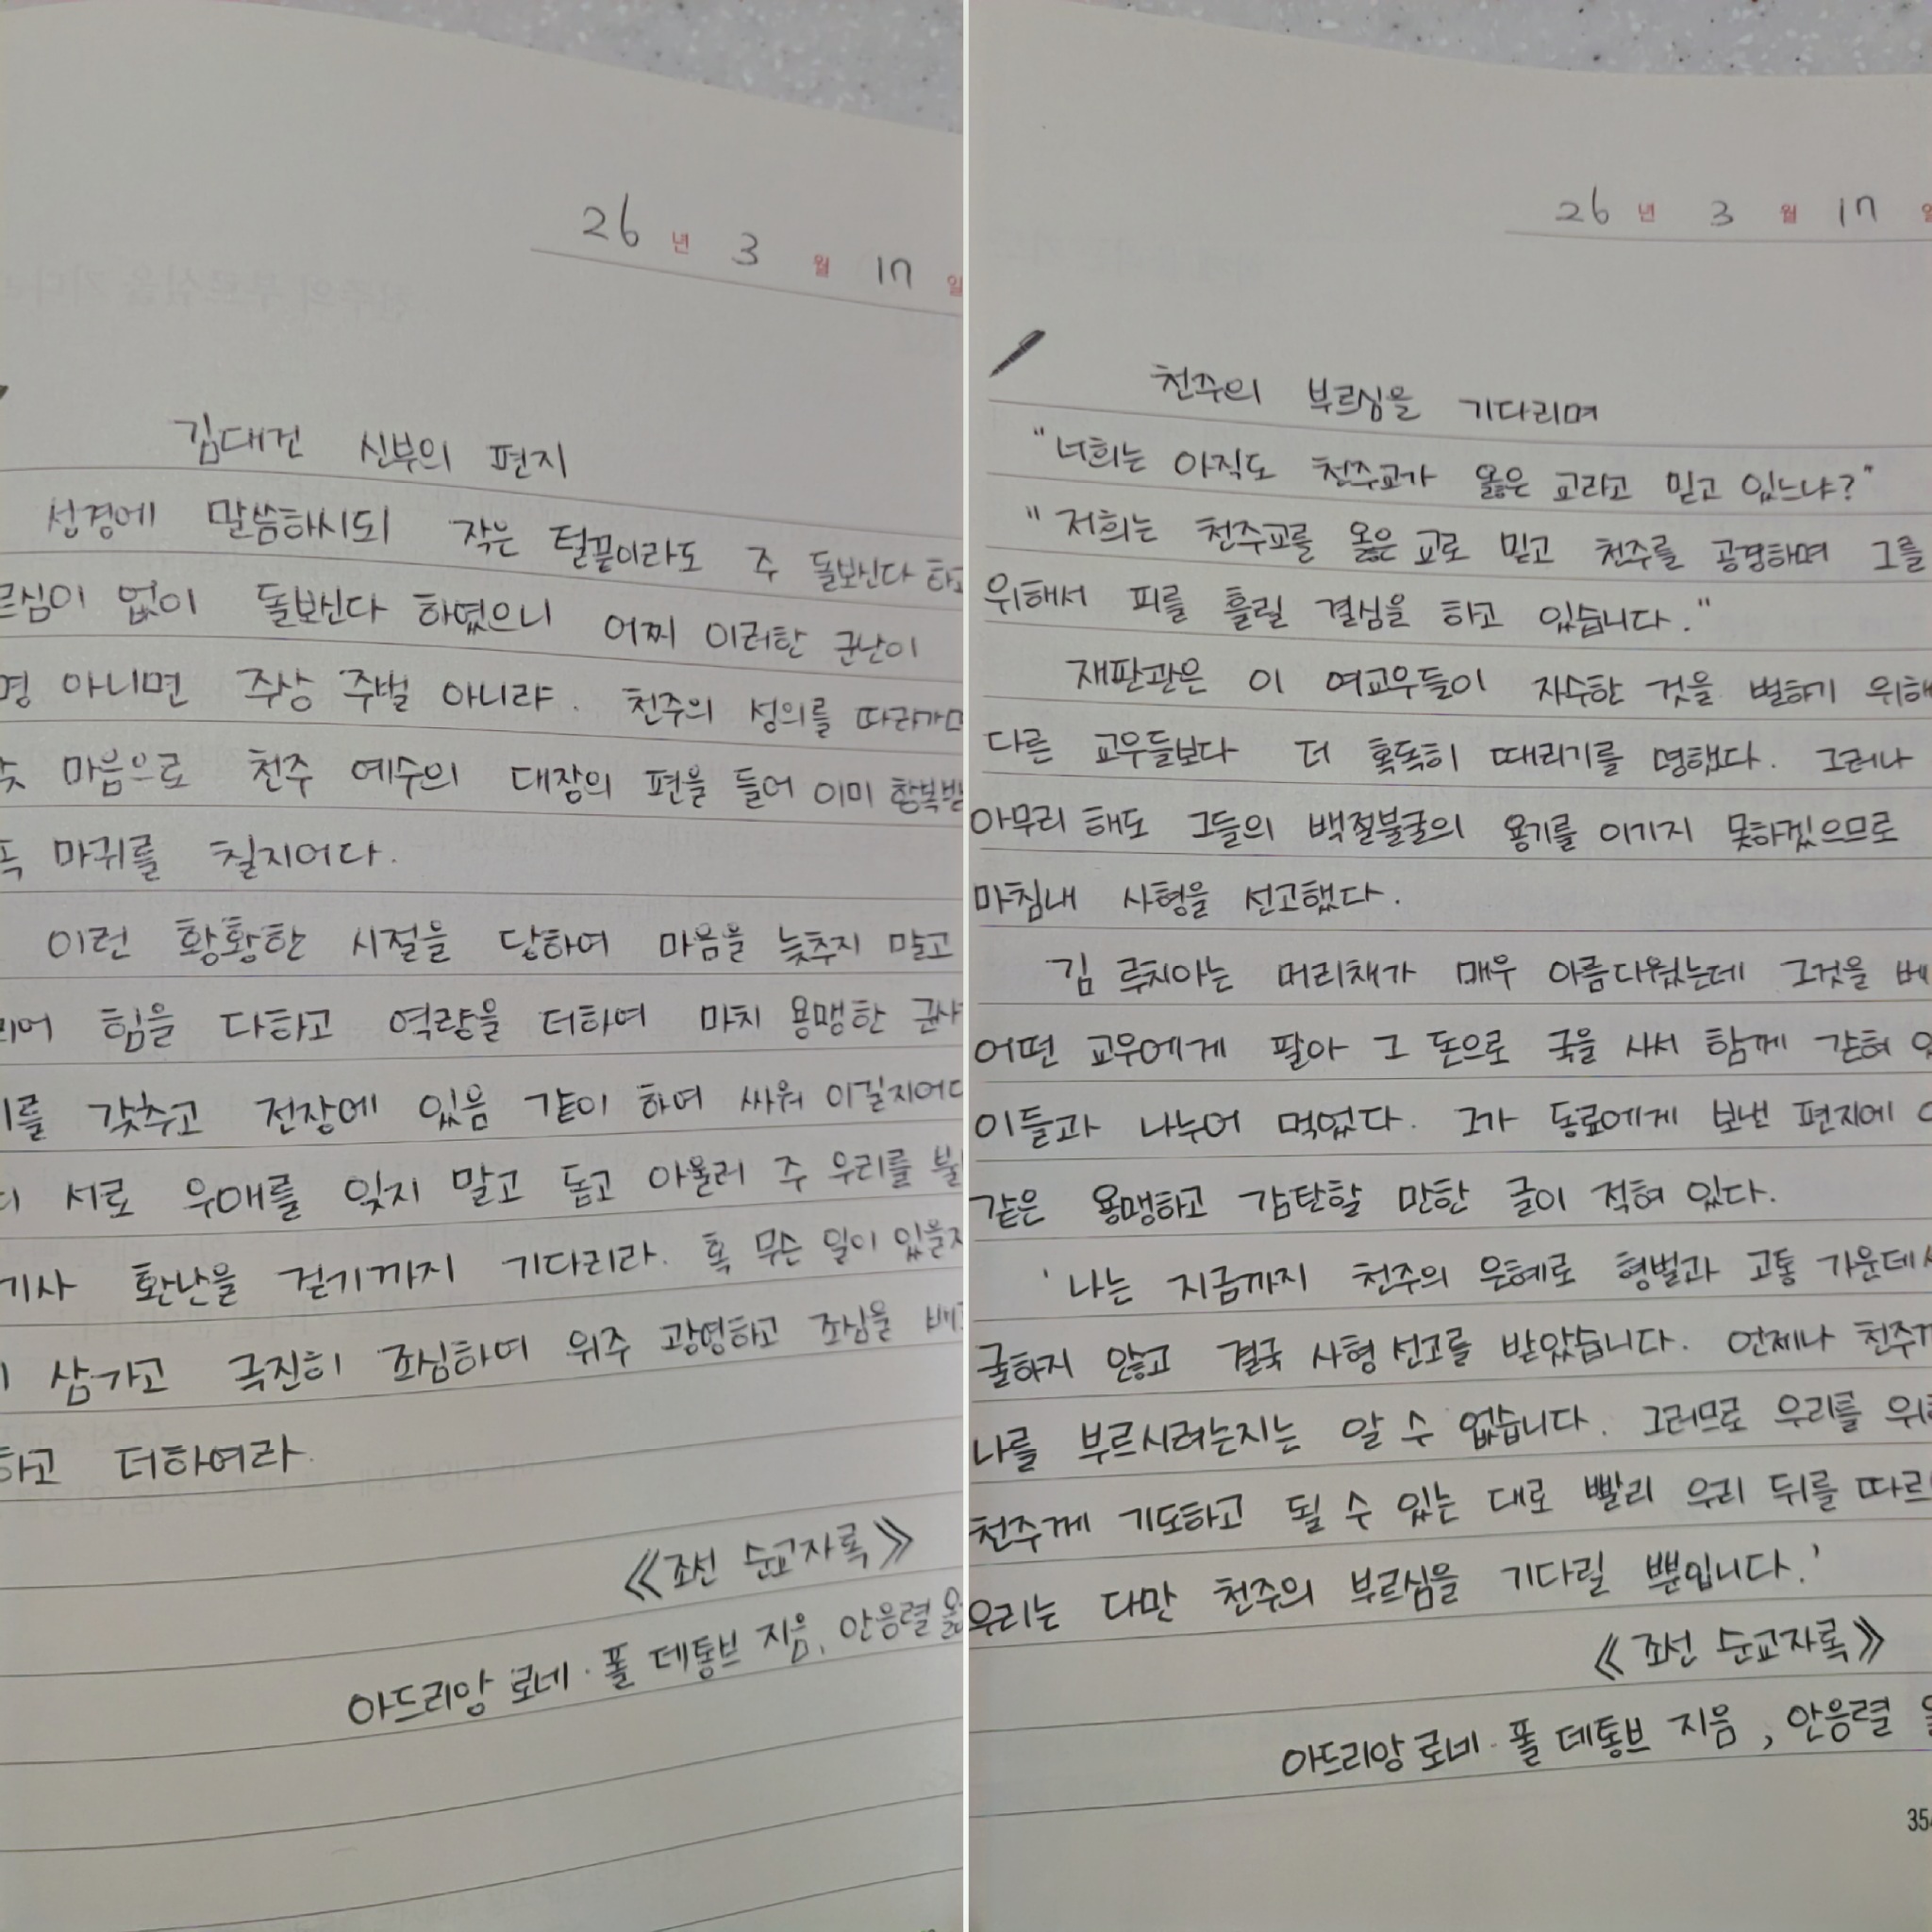 26 년 3 월 17 일
김대건 신부의 편지
성경에 말씀하시되 작은 털끝이라도 주 돌보신다 하고
르심이 없이 돌보신다 하였으니 어찌 이러한 군난이
명 아니면 주상 주벌 아니랴. 천주의 성의를 따라가며
마음으로 천주 예수의 대장의 편을 들어 이미 항복받
마귀를 칠지어다.
이런 황황한 시절을 당하여 마음을 늦추지 말고
리어 힘을 다하고 역량을 더하여 마치 용맹한 군사
기를 갖추고 전장에 있음 같이 하여 싸워 이길지어다
서로 우애를 잊지 말고 돕고 아울러 주 우리를 불
기사 환난을 걷기까지 기다리라. 혹 무슨 일이 있을지
삼가고 극진히 조심하여 위주 광영하고 조심을 배
하고 더하여라.
《조선 순교자록》
아드리앙 로네·폴 데통브 지음, 안응렬 옮
26 년 3 월 17 일
천주의 부르심을 기다리며
"너희는 아직도 천주교가 옳은 교라고 믿고 있느냐?"
"저희는 천주교를 옳은 교로 믿고 천주를 공경하며 그를
위해서 피를 흘릴 결심을 하고 있습니다."
재판관은 이 여교우들이 자수한 것을 벌하기 위해
다른 교우들보다 더 혹독히 때리기를 명했다. 그러나
아무리 해도 그들의 백절불굴의 용기를 이기지 못하겠으므로
마침내 사형을 선고했다.
김 루치아는 머리채가 매우 아름다웠는데 그것을 베
어떤 교우에게 팔아 그 돈으로 국을 사서 함께 갇혀
이들과 나누어 먹었다. 그가 동료에게 보낸 편지에
같은 용맹하고 감탄할 만한 글이 적혀 있다.
'나는 지금까지 천주의 은혜로 형벌과 고통 가운데서
굴하지 않고 결국 사형 선고를 받았습니다. 언제나 천주께
나를 부르시려는지는 알 수 없습니다. 그러므로 우리를 위해
천주께 기도하고 될 수 있는 대로 빨리 우리 뒤를 따르
우리는 다만 천주의 부르심을 기다릴 뿐입니다.'
《조선 순교자록》
아드리앙 로네·폴 데통브 지음, 안응렬